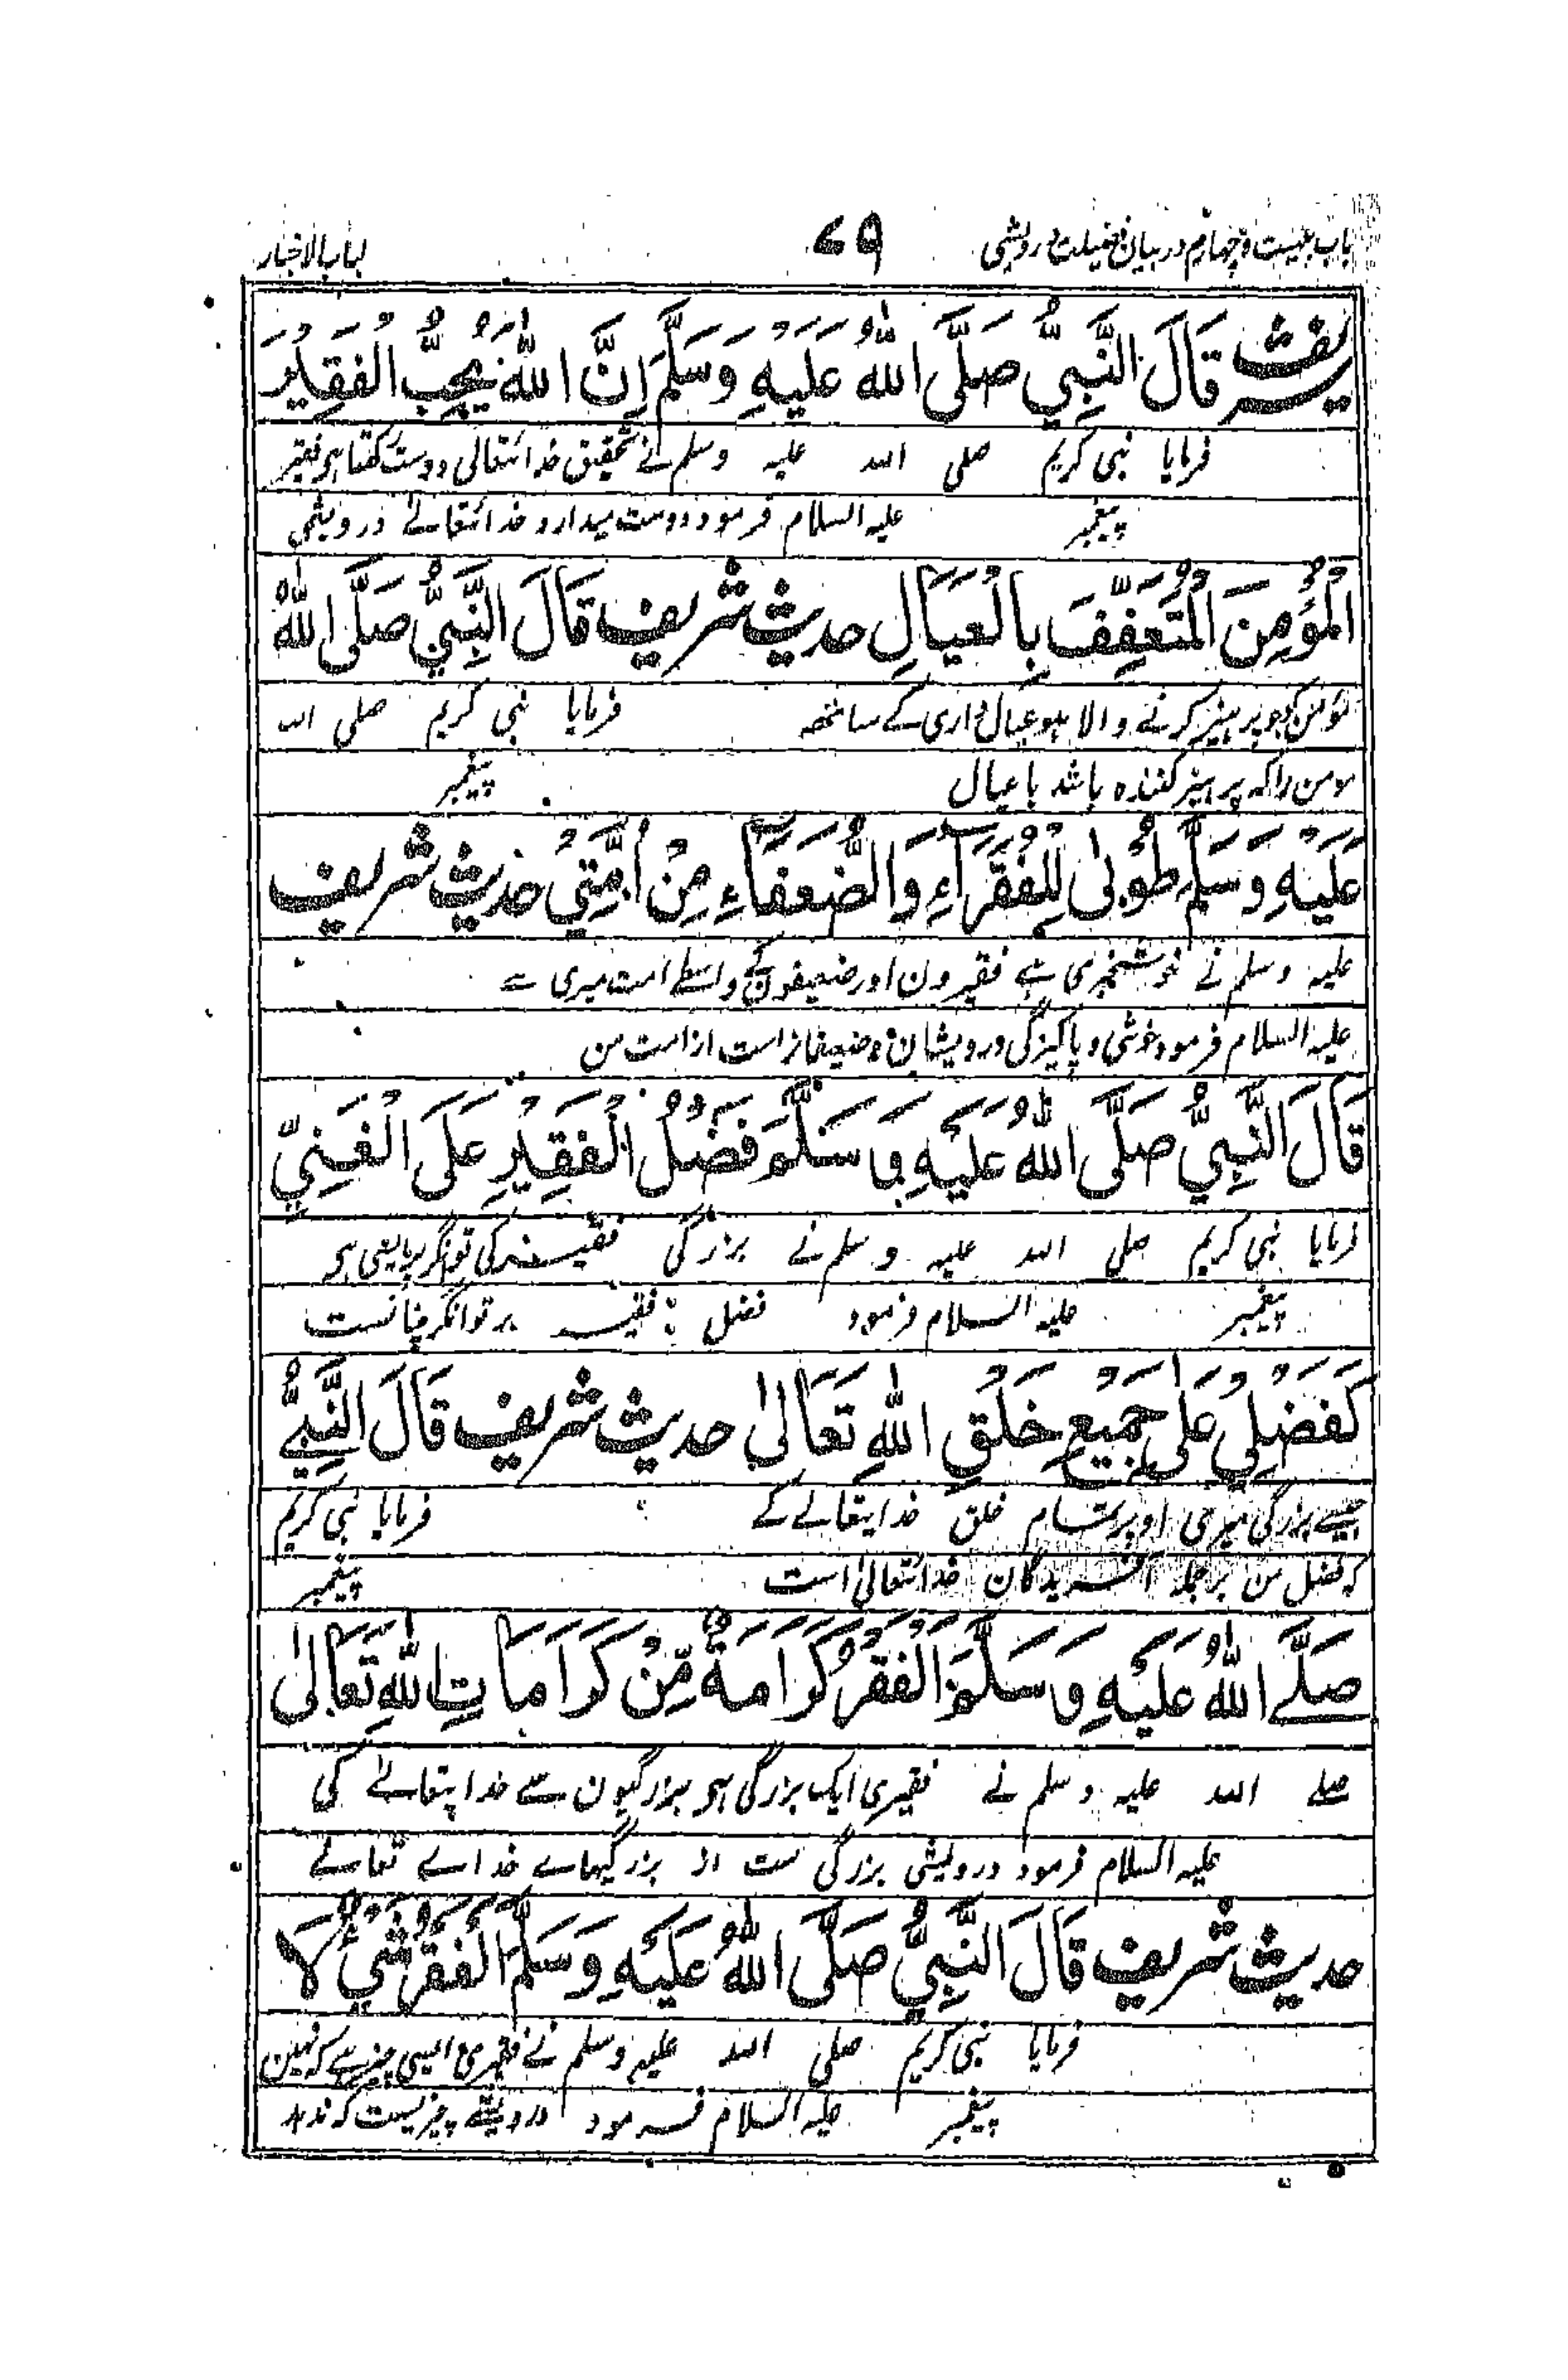 باب بیست و چهارم در بیان فضیلت درویشی ۷۹ لباب الاخبار
شریف قَالَ النَّبِيُّ صَلَّى اللهُ عَلَيْهِ وَسَلَّمَ اِنَّ اللهَ يُحِبُّ الْفَقِيْرَ
فرمایا نبی کریم صلی اللہ علیہ وسلم نے تحقیق خدائتعالی دوست رکھتا ہی فقیر
پیغمبر علیہ السلام فرمود دوست میدارد خدائتعالے درویشی
الْمُؤْمِنَ الْمُتَعَفِّفَ بِالْعَيَالِ حدیث شریف قَالَ النَّبِيُّ صَلَّى اللهُ
مؤمن کو جو پرہیز کرنے والا ہو عیال داری کے ساتھہ فرمایا نبی کریم صلی اللہ
مومن را کہ پرہیز کنندہ باشد با عیال پیغمبر
عَلَيْهِ وَسَلَّمَ طُوْبٰى لِلْفُقَرَآءِ وَالضُّعَفَآءِ مِنْ اُمَّتِيْ حدیث شریف
علیہ وسلم نے خوشخبری ہے فقیرون اور ضعیفون کے واسطے امت میری سے
علیہ السلام فرمود خوشی و پاکیزگی درویشان و ضعیفان راست از امت من
قَالَ النَّبِيُّ صَلَّى اللهُ عَلَيْهِ وَسَلَّمَ فَضْلُ الْفَقِيْرِ عَلَى الْغَنِيِّ
فرمایا نبی کریم صلی اللہ علیہ وسلم نے بزرگی فقیر کی تونگر پر ایسی ہی
پیغمبر علیہ السلام فرمود فضل فقیر بر توانگر چنانست
كَفَضْلِيْ عَلٰى جَمِيْعِ خَلْقِ اللهِ تَعَالٰى حدیث شریف قَالَ النَّبِيُّ
جیسے بزرگی میری اوپر تمام خلق خدایتعالے کے فرمایا نبی کریم
کہ فضل من بر جملہ آفریدگان خدائتعالی است پیغمبر
صَلَّے اللهُ عَلَيْهِ وَسَلَّمَ الْفَقْرُ كَرَامَةٌ مِّنْ كَرَامَاتِ اللهِ تَعَالٰى
صلے اللہ علیہ وسلم نے فقیری ایک بزرگی ہی بزرگیون سے خدایتعالے کی
علیہ السلام فرمود درویشی بزرگی ست از بزرگیہاے خداے تعالے
حدیث شریف قَالَ النَّبِيُّ صَلَّى اللهُ عَلَيْهِ وَسَلَّمَ الْفَقْرُ شَيْءٌ لَا
فرمایا نبی کریم صلی اللہ علیہ وسلم نے فقیری ایسی چیز ہے کہ نہین
پیغمبر علیہ السلام فرمود درویشی چیزیست کہ ندہد